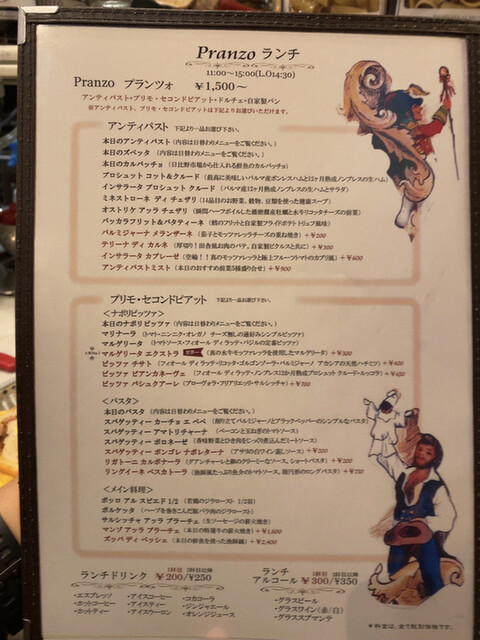 Pranzo ランチ
11:00〜15:00(L.O14:30)
Pranzo プランツォ ￥1,500〜
アンティパスト・プリモ・セコンドピアット・ドルチェ・自家製パン
※アンティパスト、プリモ・セコンドピアットは下記よりお選びいただけます。
アンティパスト 下記より一品お選び下さい。
本日のアンティパスト (内容は日替わりメニューをご覧ください。)
本日のズペッタ (内容は日替わりメニューをご覧ください。)
本日のカルパッチョ (日比野市場から仕入れる鮮魚のカルパッチョ)
プロシュット コット&クルード (最高に美味しいパルマ産ボンレスハムと12ヶ月熟成ノンプレスの生ハム)
インサラータ プロシュット クルード (パルマ産12ヶ月熟成ノンプレスの生ハムとサラダ)
ミネストローネ ディ チェザリ (14品目のお野菜、穀物、豆類を使った健康スープ)
オストリケ アッラ チェザリ (瞬間ハーフボイルした播磨灘産牡蠣と水牛リコッタチーズの前菜)
バッカラフリット&パタティーネ (鱈のフリットと自家製フライドポテト トリュフ風味)
パルミジャーナ メランザーネ (茄子とモッツァレラチーズの重ね焼き) +￥200
テリーナ ディ カルネ (厚切り!田舎風お肉のパテ。自家製ピクルスと共に) +￥300
インサラータ カプレーゼ (空輸!!真のモッツァレラと極上フルーツトマトのカプリ風) +￥600
アンティパストミスト (本日のおすすめ前菜5種盛り合せ) +￥900
プリモ・セコンドピアット 下記より一品お選び下さい。
<ナポリピッツァ>
本日のナポリピッツァ (内容は日替わりメニューをご覧ください。)
マリナーラ (トマト・ニンニク・オレガノ チーズ無しの通好みシンプルピッツァ)
マルゲリータ (トマトソース・フィオール ディ ラッテ・バジルの定番ピッツァ)
マルゲリータ エクストラ (真の水牛モッツァレッラを使用したマルゲリータ) +￥500
ピッツァ チサト (フィオール ディ ラッテ・リコッタ・ゴルゴンゾーラ・パルミジャーノ アカシアの天然ハチミツ) +￥400
ピッツァ ビアンカネーヴェ (フィオール ディ ラッテ・ノンプレス12か月熟成プロシュット クルード・ルッコラ) +￥450
ピッツァ パシュクアーレ (プローヴォラ・フリアリエッリ・サルシッチャ) +￥700
<パスタ>
本日のパスタ (内容は日替わりメニューをご覧ください。)
スパゲッティー カーチョ エ ペペ (削り立てパルミジャーノとブラックペッパーのシンプルなパスタ)
スパゲッティー アマトリチャーナ (ベーコンと玉ねぎのトマトソース)
スパゲッティー ボロネーゼ (香味野菜とひき肉をじっくり煮込んだミートソース)
スパゲッティー ボンゴレ ナポレターナ (アサリの白ワイン蒸しソース) +￥200
リガトーニ カルボナーラ (グアンチャーレと卵のクリーミーなソース、ショートパスタ) +￥200
リングイーネ ペスカトーラ (漁師風たっぷり魚介のトマトソース、楕円形のロングパスタ) +￥750
<メイン料理>
ポッロ アル スピエド 1/2 (若鶏のジラロースト 1/2羽)
ポルケッタ (ハーブを巻きこんだ豚バラ肉のジラロースト)
サルシッチャ アッラ ブラーチェ (生ソーセージの薪火焼き)
マンゾ アッラ ブラーチェ (本日の特選牛の薪火焼き) +￥1,600
ズッパ ディ ペッシェ (本日の鮮魚を使った漁師鍋) +￥2,400
ランチドリンク 1杯目 ￥200/ 2杯目以降 ￥250
・エスプレッソ ・アイスコーヒー ・コカコーラ
・ホットコーヒー ・アイスティー ・ジンジャエール
・ホットティー ・アイスウーロン ・オレンジジュース
ランチアルコール 1杯目 ￥300/ 2杯目以降 ￥350
・グラスビール
・グラスワイン(赤/白)
・グラススプマンテ
*料金は、全て税別価格です。